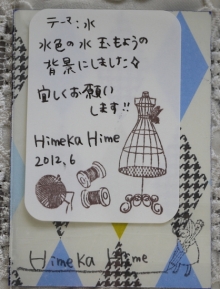 テーマ:水
水色の水玉もようの
背景にしました♪
宜しくお願い
します!!
Himeka Hime
2012.6
Himeka Hime